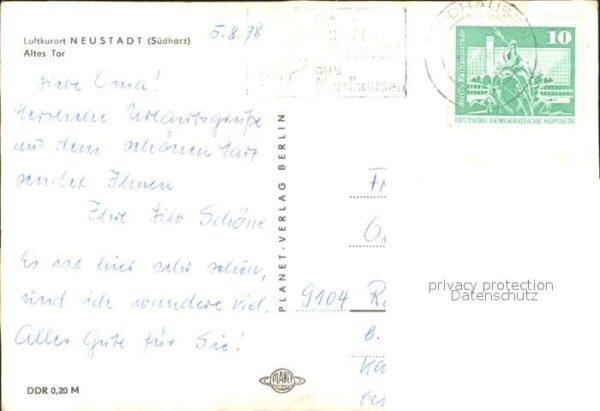 Luftkurort NEUSTADT (Südharz)
Altes Tor
5.8.78
aus
Nordhausen
10
Berlin-Rathausstraße
DEUTSCHE DEMOKRATISCHE REPUBLIK
Liebe Oma!
Herzliche Urlaubsgrüße
aus dem schönen Harz
sendet Ihnen
Ihre Schöne
Es ist hier sehr schön,
und ich wandere viel.
Alles Gute für Sie!
PLANET-VERLAG BERLIN
9104
privacy protection
Datenschutz
PLANET
DDR 0,20 M